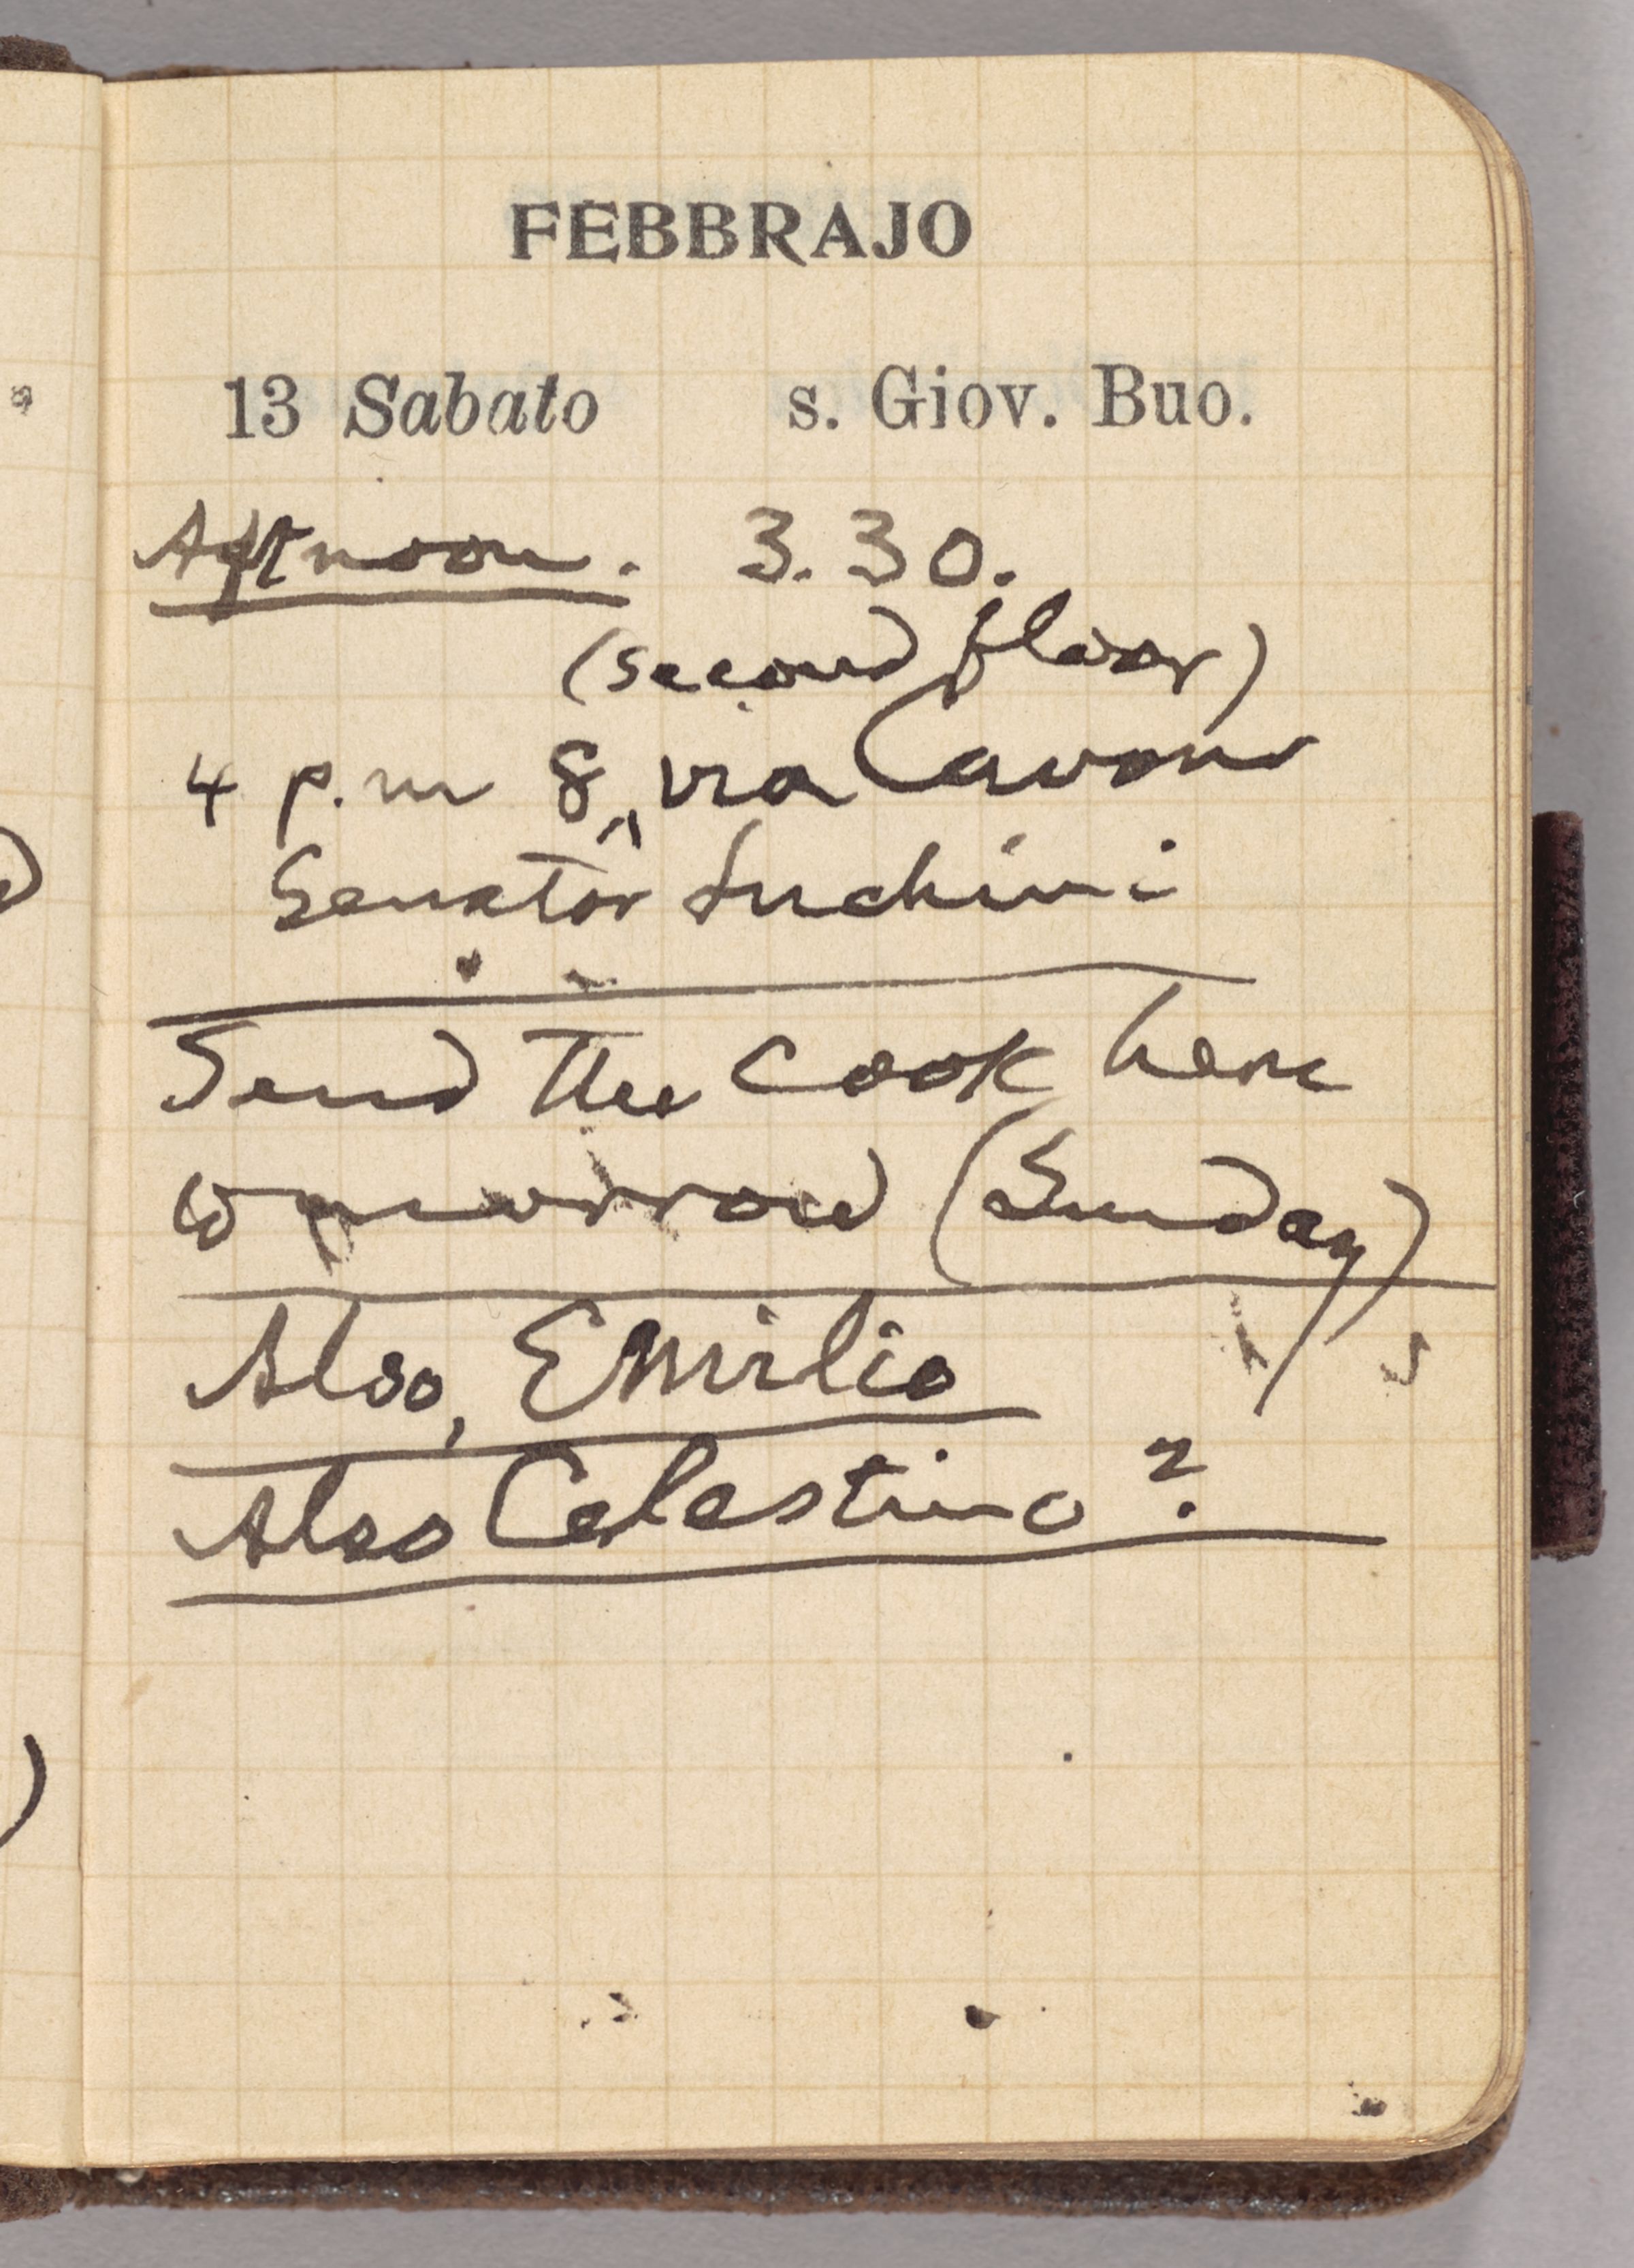 FEBBRAJO
13 Sabato s. Giov. Buo.
Aftnoon. 3.30.
(second floor)
4 p.m 8, via Cavour
Senator Luchini
Send the cook here
tomorrow (Sunday)
Also, Emilio
Also Celestino?